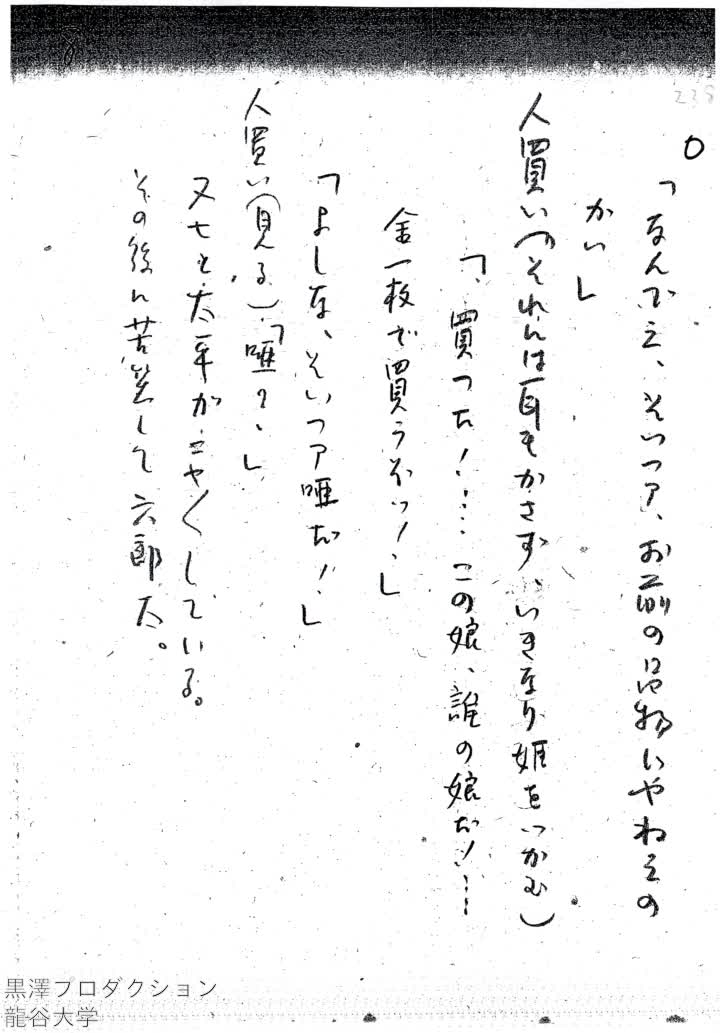 238
○
「なんでえ、そいつァ、お前の品物じやねえの
かい」
人買い(それには耳もかさず、いきなり姫をつかむ)
「買つた!…… この娘、誰の娘だ!……
金一枚で買うぞッ!」
「よしな、そいつァ唖だ!」
人買い(見る)「唖?」
又七と太平がニヤ〱している。
その後に苦笑して六郎太。
黒澤プロダクション
龍谷大学